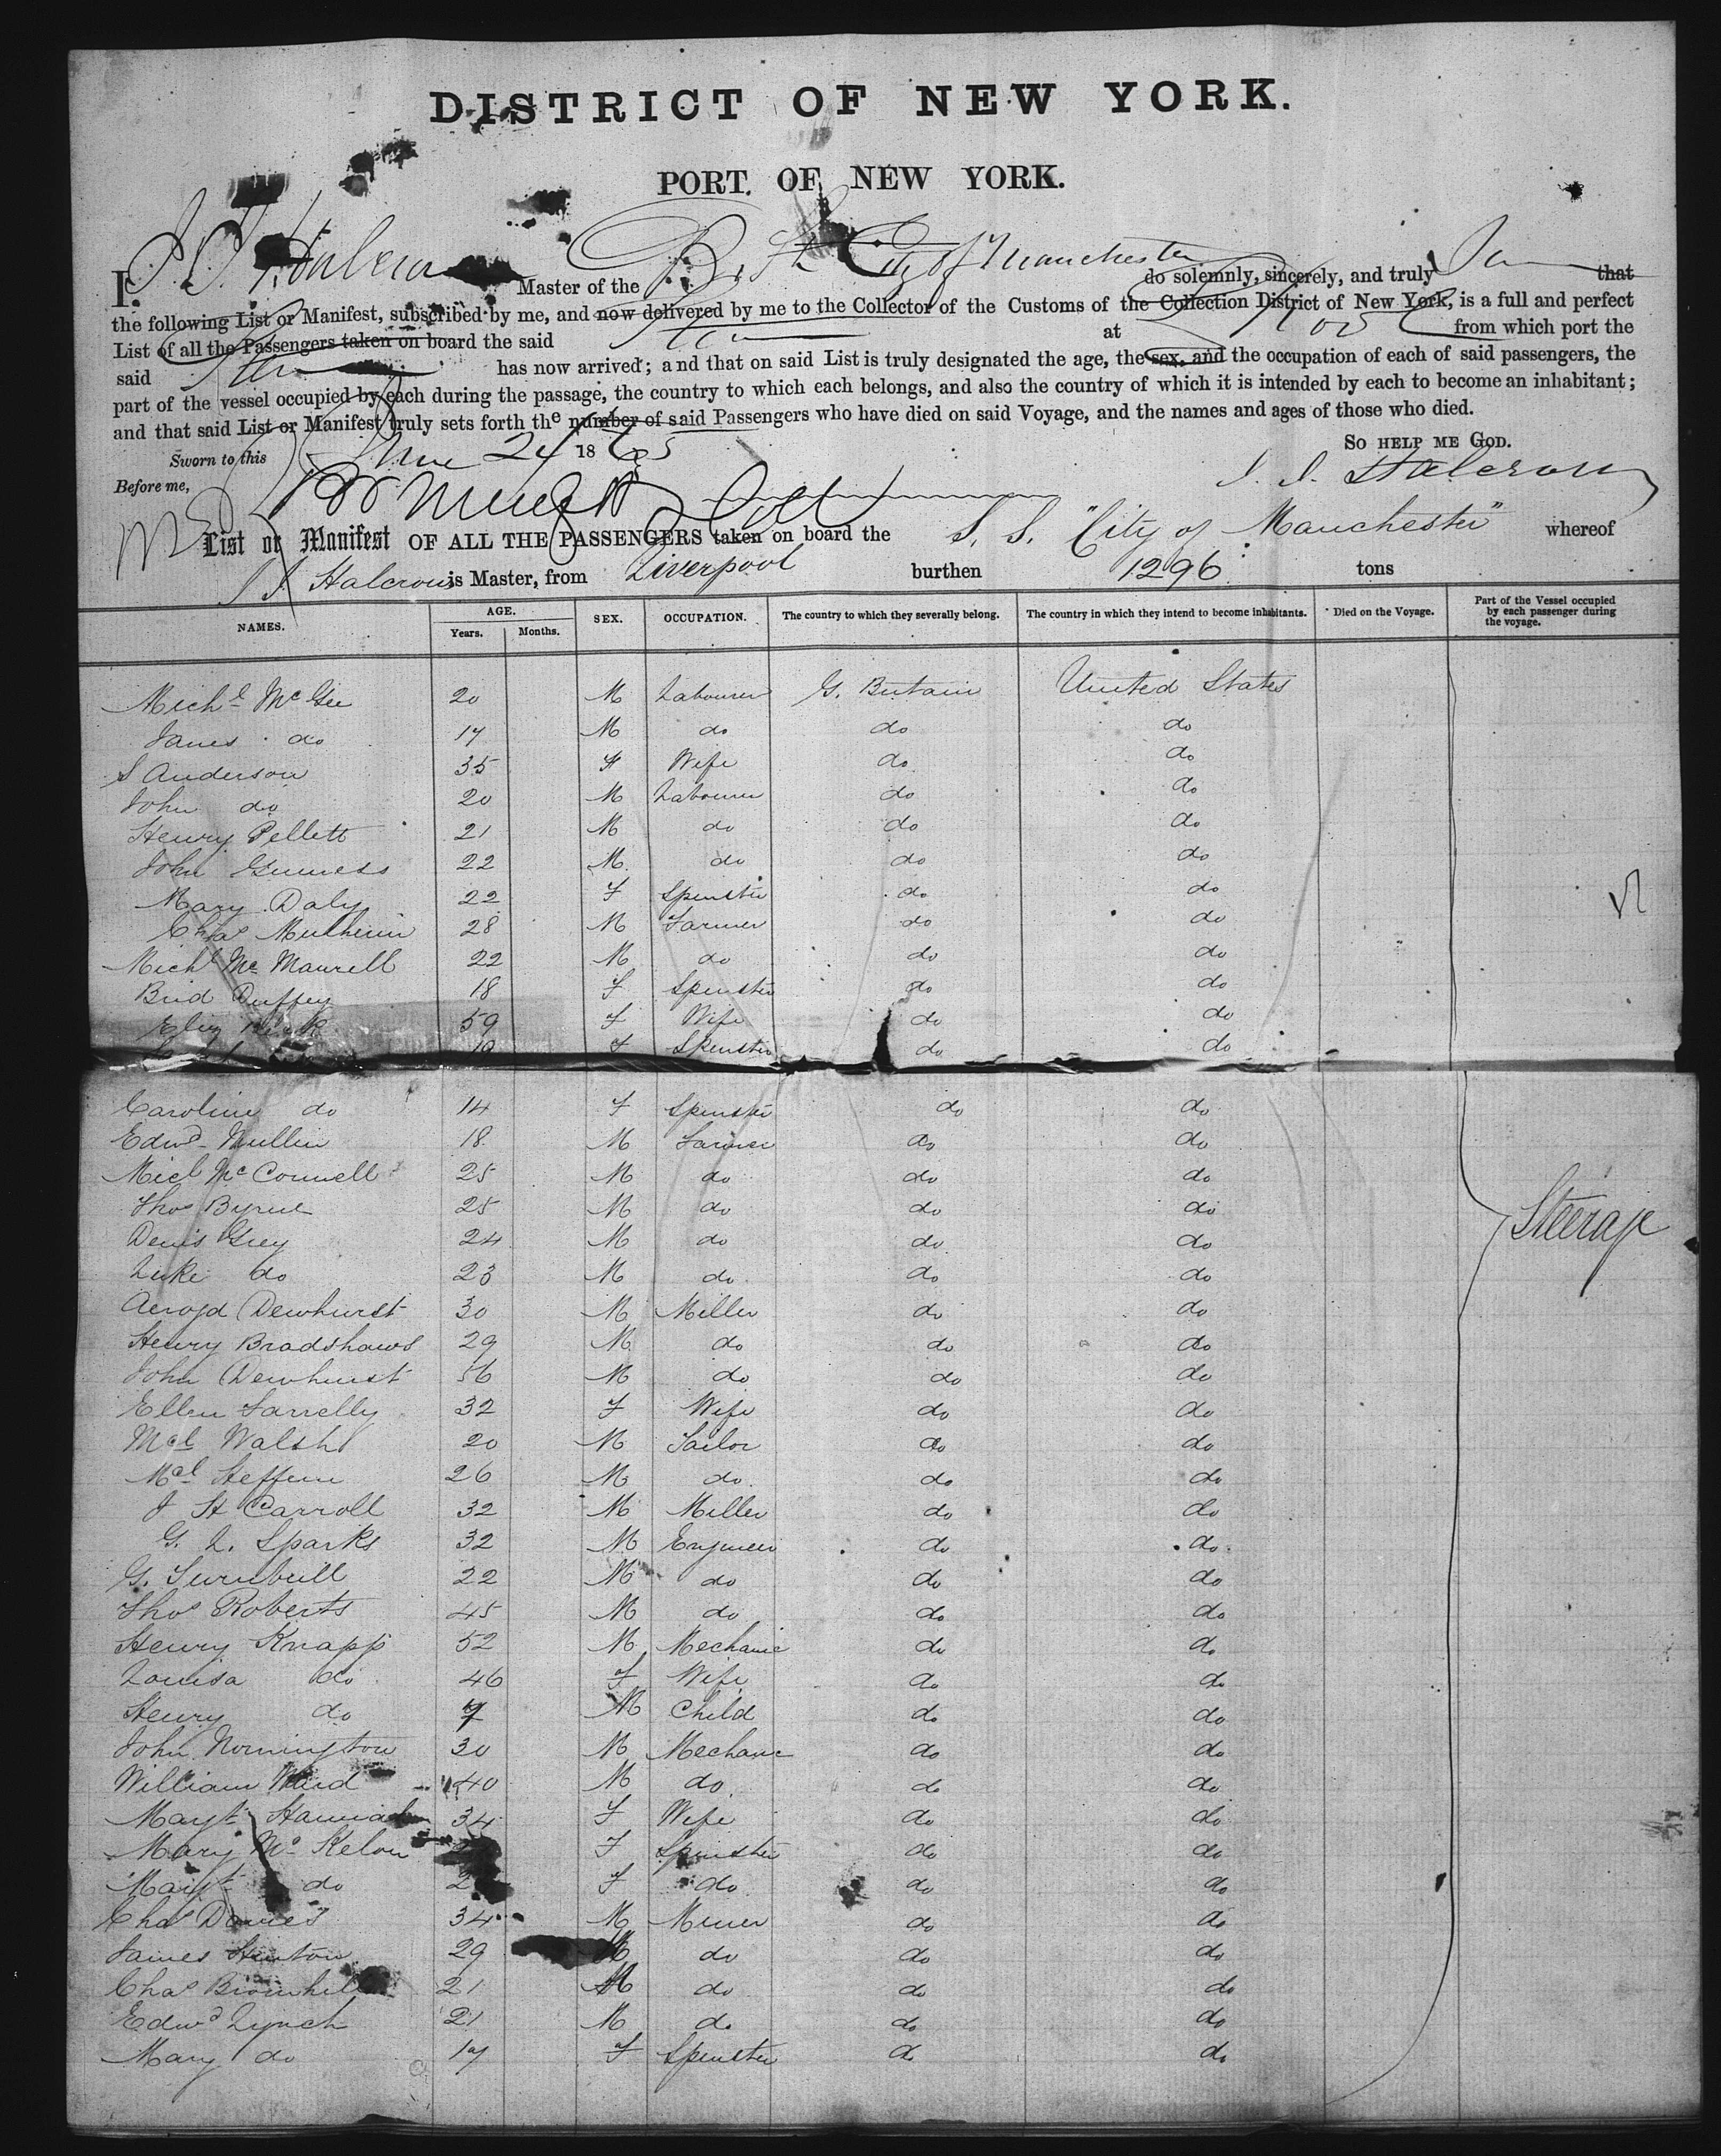 DISTRICT OF NEW YORK.
PORT OF NEW YORK.
I, Master of the Br. St. City of Manchester do solemnly, sincerely, and truly that
the following List or Manifest, subscribed by me, and now delivered by me to the Collector of the Customs of the Collection District of New York, is a full and perfect
List of all the Passengers taken on board the said at from which port the
said has now arrived; and that on said List is truly designated the age, the sex, and the occupation of each of said passengers, the
part of the vessel occupied by each during the passage, the country to which each belongs, and also the country of which it is intended by each to become an inhabitant;
and that said List or Manifest truly sets forth the number of said Passengers who have died on said Voyage, and the names and ages of those who died.
SO HELP ME GOD.
Sworn to this June 24 1865
Before me,
J. J. Halcrow
List or Manifest OF ALL THE PASSENGERS taken on board the S. S. "City of Manchester" whereof
J. J. Halcrow is Master, from Liverpool burthen 1296 tons
NAMES. AGE. Years. Months. SEX. OCCUPATION. The country to which they severally belong. The country in which they intend to become inhabitants. Died on the Voyage. Part of the Vessel occupied by each passenger during the voyage.
Michl McGee 20 M Labourer G. Britain United States
James do 17 M do do do
S Anderson 35 F Wife do do
John do 20 M Labourer do do
Henry Pellett 21 M do do do
John Guiness 22 M. do do do
Mary Daly 22 F Spinster do do
Chas Mulherin 28 M Farmer do do
Michl Mc Maurell 22 M do do do
Brid Duffey 18 F Spinster do do
Eliz 59 F Wife do do
F Spinster do do
Caroline do 14 F Spinster do do
Edwd Mullin 18 M Farmer do do
Micl McConnell 25 M do do do
Thos Byrne 25 M do do do
Denis Grey 24 M do do do
Luke do 23 M do do do
Steerage
Aeroyd Dewhurst 30 M Miller do do
Henry Bradshaws 29 M do do do
John Dewhurst 56 M do do do
Ellen Farrelly 32 F Wife do do
Mcl Walsh 20 M Tailor do do
Mcl Steffern 26 M do do do
J H Carroll 32 M Miller do do
G. L. Sparks 32 M Engineer do do
G. Turnbull 22 M do do do
Thos Roberts 45 M do do do
Henry Knapp 52 M Mechanic do do
Louisa do 46 F Wife do do
Henry do 7 M Child do do
John Nornington 30 M Mechanic do do
William Ward 40 M do do do
Mayt Hannah 34 F Wife do do
Mary Mc Kelow F Spinster do do
Mayt do F do do do
Chas Davies 34 M Miner do do
James Hinton 29 M do do do
Chas Bromhill 21 M do do do
Edwd Lynch 21 M do do do
Mary do 17 F Spinster do do